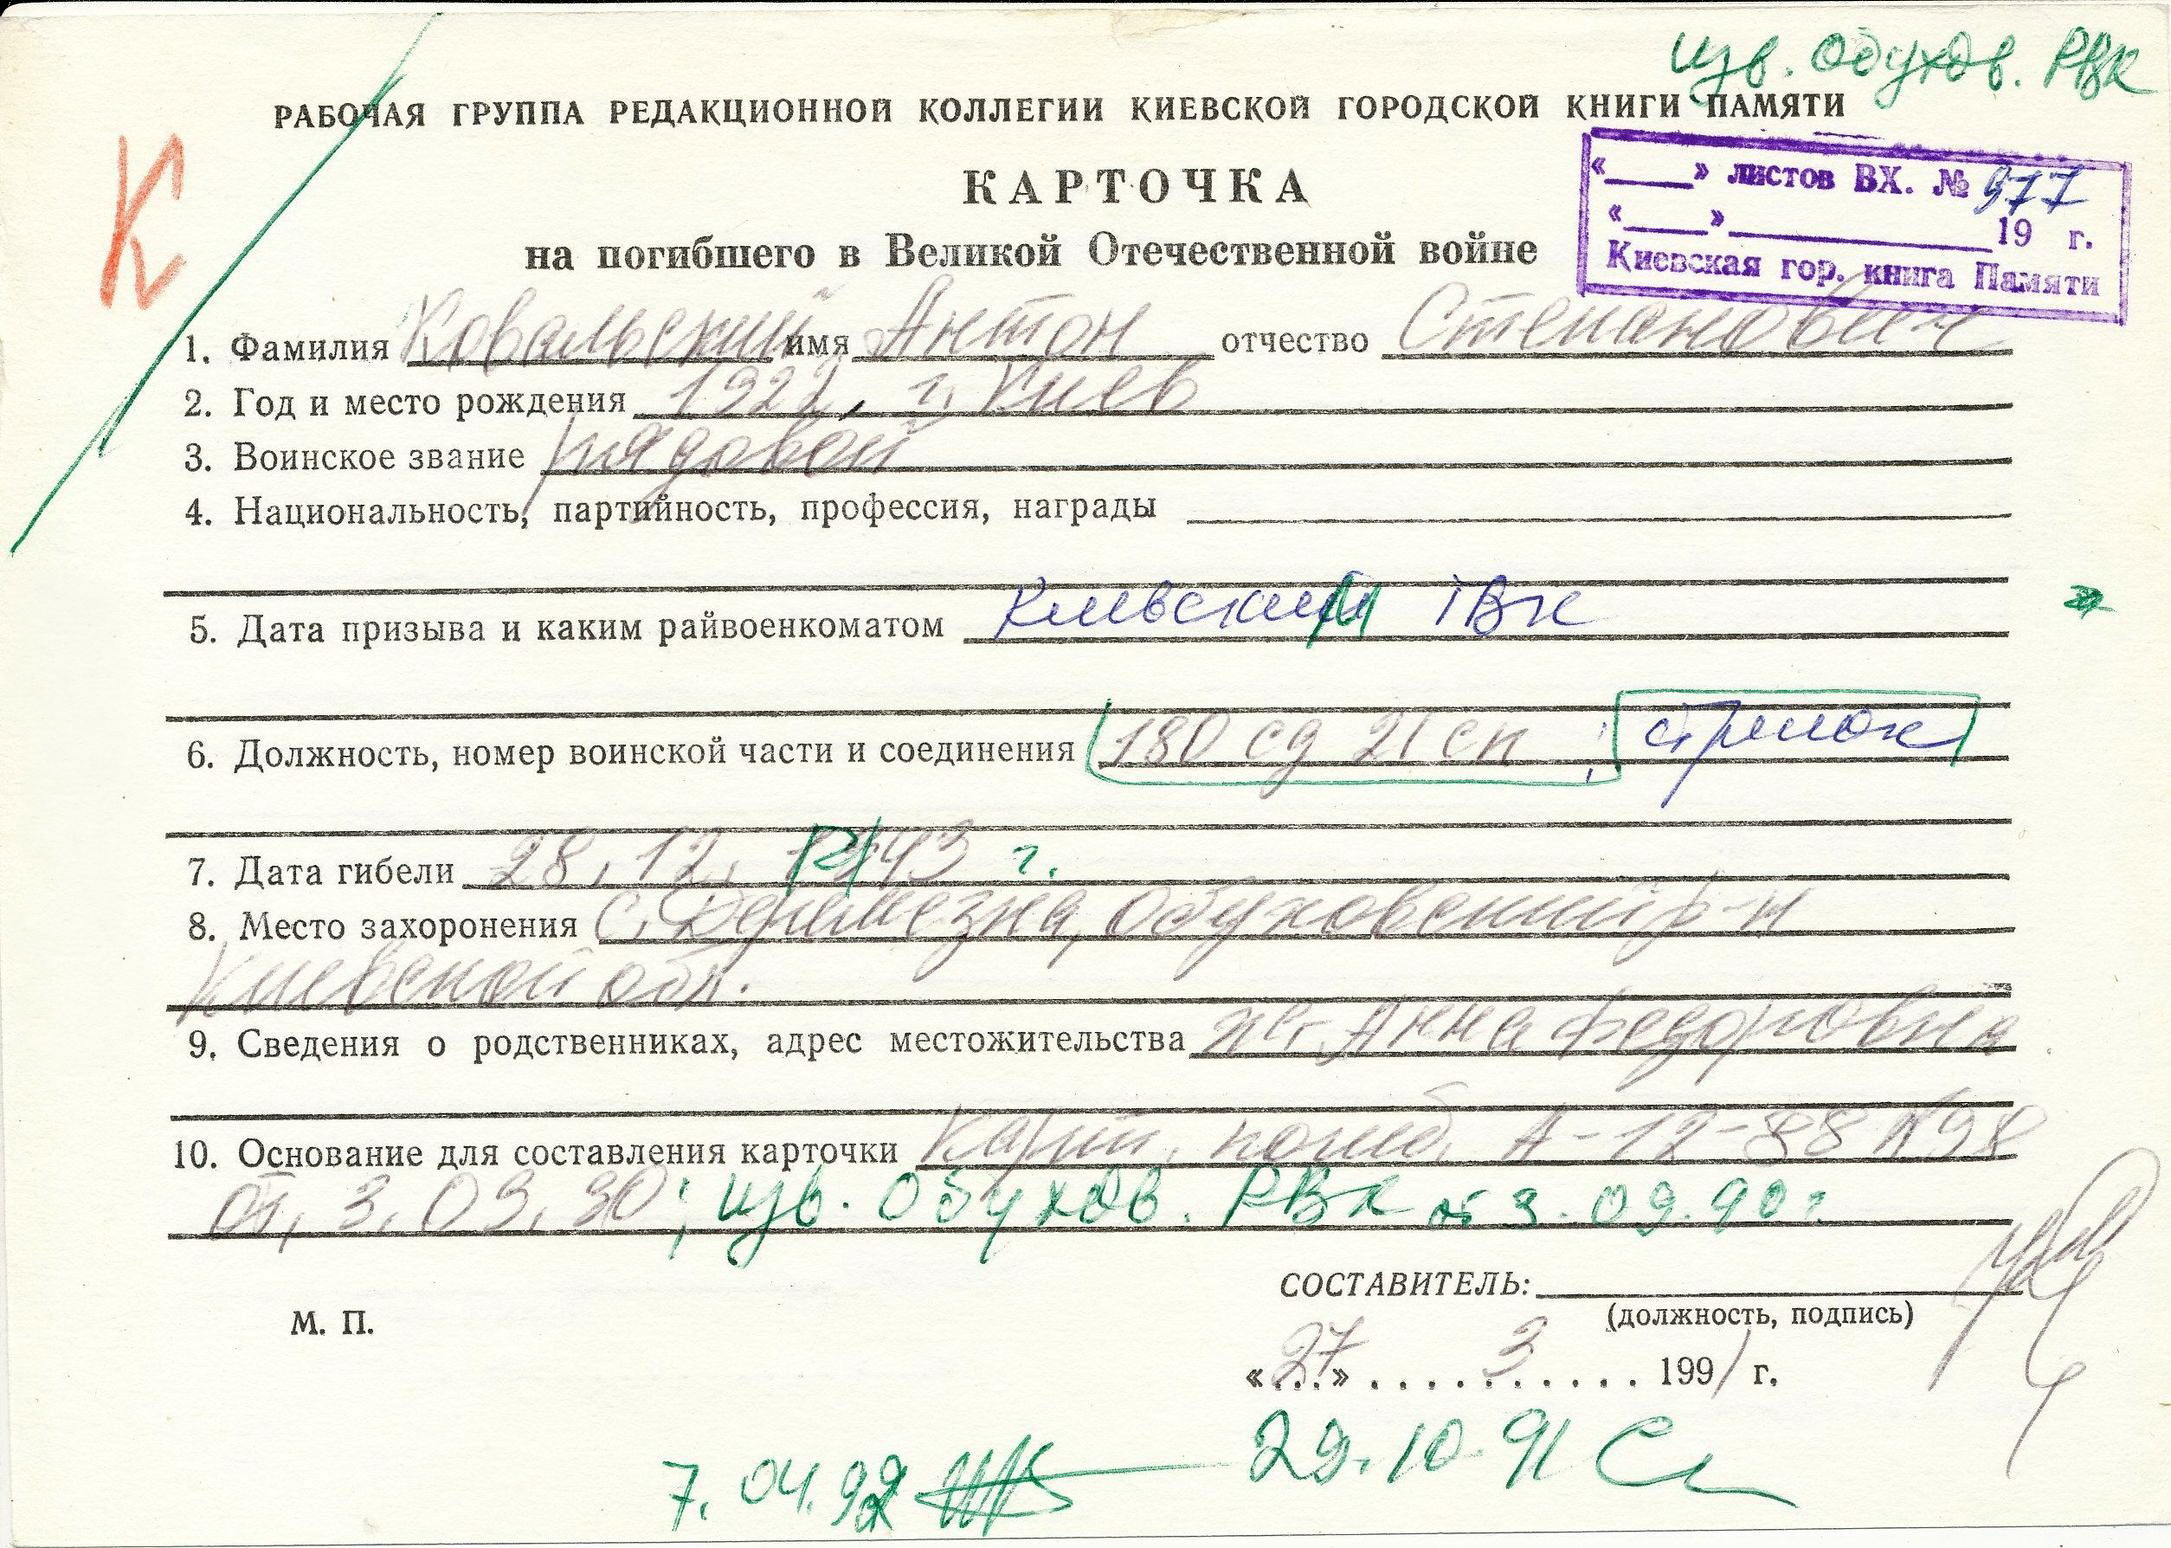 изв. Обухов. РВК
РАБОЧАЯ ГРУППА РЕДАКЦИОННОЙ КОЛЛЕГИИ КИЕВСКОЙ ГОРОДСКОЙ КНИГИ ПАМЯТИ
К
КАРТОЧКА
на погибшего в Великой Отечественной войне
«____» листов ВХ. № 977
«____»____________19 г.
Киевская гор. книга Памяти
1. Фамилия Ковальский имя Антон отчество Степанович
2. Год и место рождения 1922, г. Киев
3. Воинское звание рядовой
4. Национальность, партийность, профессия, награды
5. Дата призыва и каким райвоенкоматом Киевским ГВК
6. Должность, номер воинской части и соединения 180 сд 21 сп; стрелок
7. Дата гибели 28.12.1943 г.
8. Место захоронения с. Деремезна, Обуховский р-н
Киевской обл.
9. Сведения о родственниках, адрес местожительства Анна Федоровна
10. Основание для составления карточки Карт. погиб. А-12-88 №98
от, 3.09.90; изв. Обухов. РВК от 3.09.90 г.
СОСТАВИТЕЛЬ:
(должность, подпись)
М. П.
«27» 3 1991 г.
29.10.91
7.04.92